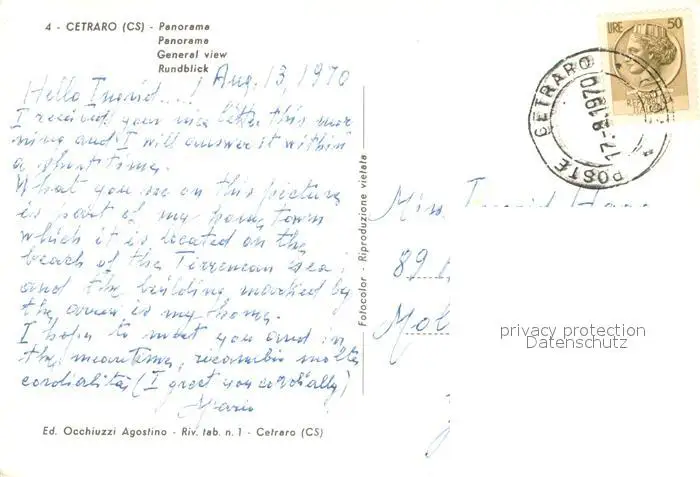 4 - CETRARO (CS) - Panorama
Panorama
General view
Rundblick
Aug. 13, 1970
Hello Ingrid....!
I received your nice letter this mor
ning and I will answer it within
a short time.
What you see on this picture
is part of my home town
which it is located on the
beach of the Tirrenean sea;
and the building marked by
the arrow is my home.
I hope to meet you and in
the meantime, ricambio molta
cordialità (I greet you cordially)
Mario
Ed. Occhiuzzi Agostino - Riv. tab. n. 1 - Cetraro (CS)
Fotocolor - Riproduzione vietata
LIRE 50
POSTE CETRARO
17-8.1970
Miss Ingrid
89
privacy protection
Datenschutz